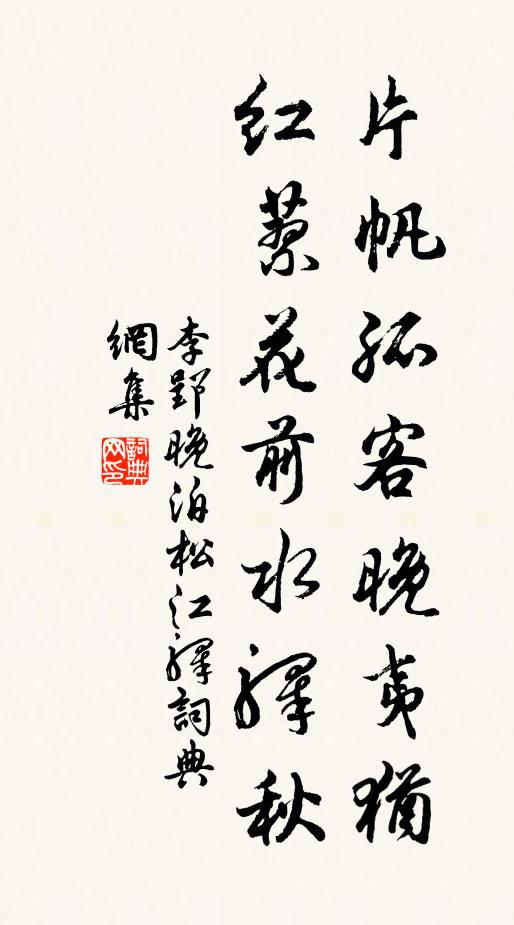 片帆孤客晚夷猶
紅蓼花前水驛秋
李郢晚泊松江驛詞典
網集
詞典
网印